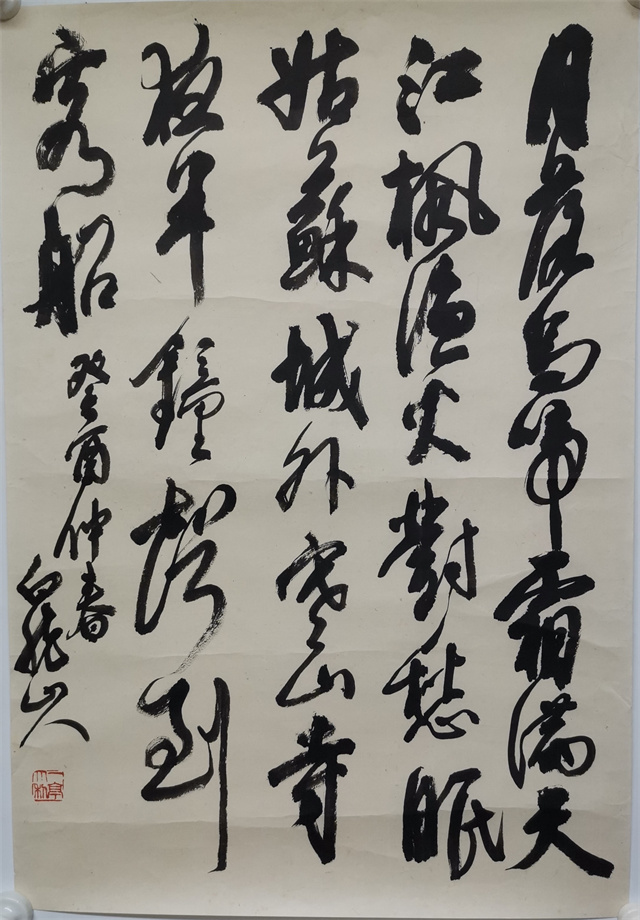 月落烏啼霜滿天
江楓漁火對愁眠
姑蘇城外寒山寺
夜半鐘聲到
客船
癸酉仲春
白龍山人